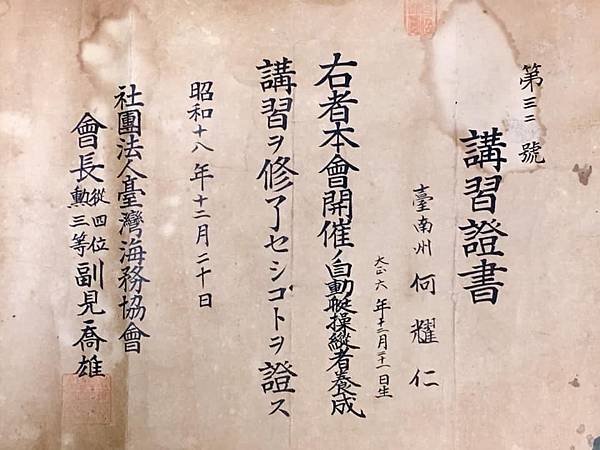 第三二號
講習證書
臺南州 何耀仁
大正六年十二月二十一日生
右者本會開催ノ自動艇操縱者養成
講習ヲ修了セシコトヲ證ス
昭和十八年十二月二十日
社團法人臺灣海務協會
會長 從四位勳三等 副見喬雄